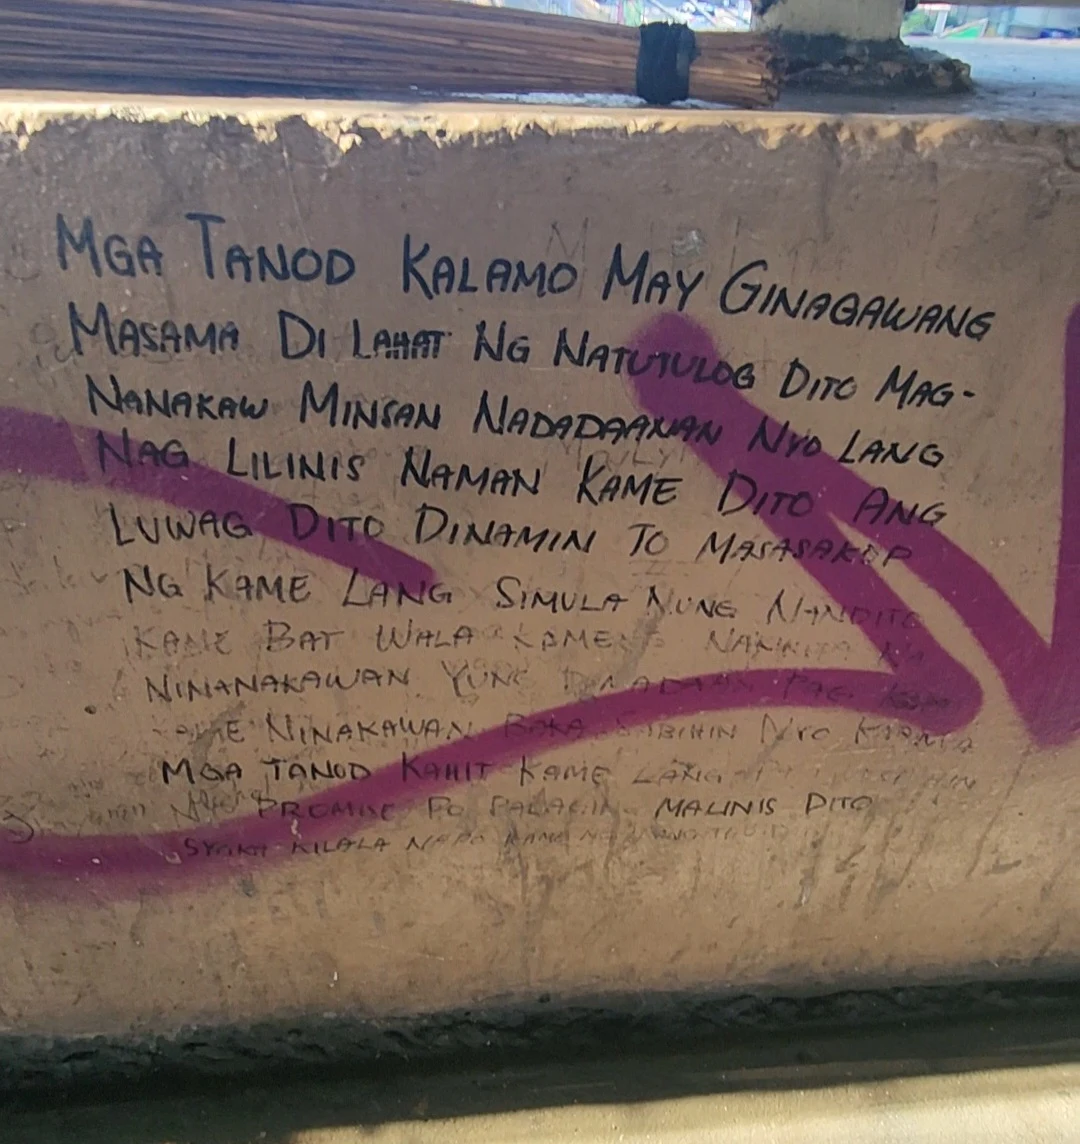 MGA TANOD KALAMO MAY GINAGAWANG
MASAMA DI LAHAT NG NATUTULOG DITO MAG-
NANAKAW MINSAN NADADAANAN NYO LANG
NAG LILINIS NAMAN KAME DITO ANG
LUWAG DITO DINAMIN TO MASASAKOP
NG KAME LANG SIMULA NUNG NANDITO
KAME BAT WALA KAMENG NA
NINANAKAWAN YUNG DUMADAAN PAG
KAME NINAKAWAN BAKA SABIHIN NYO KARMA
MGA TANOD KAHIT KAME LANG
NYO PROMISE PO PALAGING MALINIS DITO
KILALA NAPO KAME NG